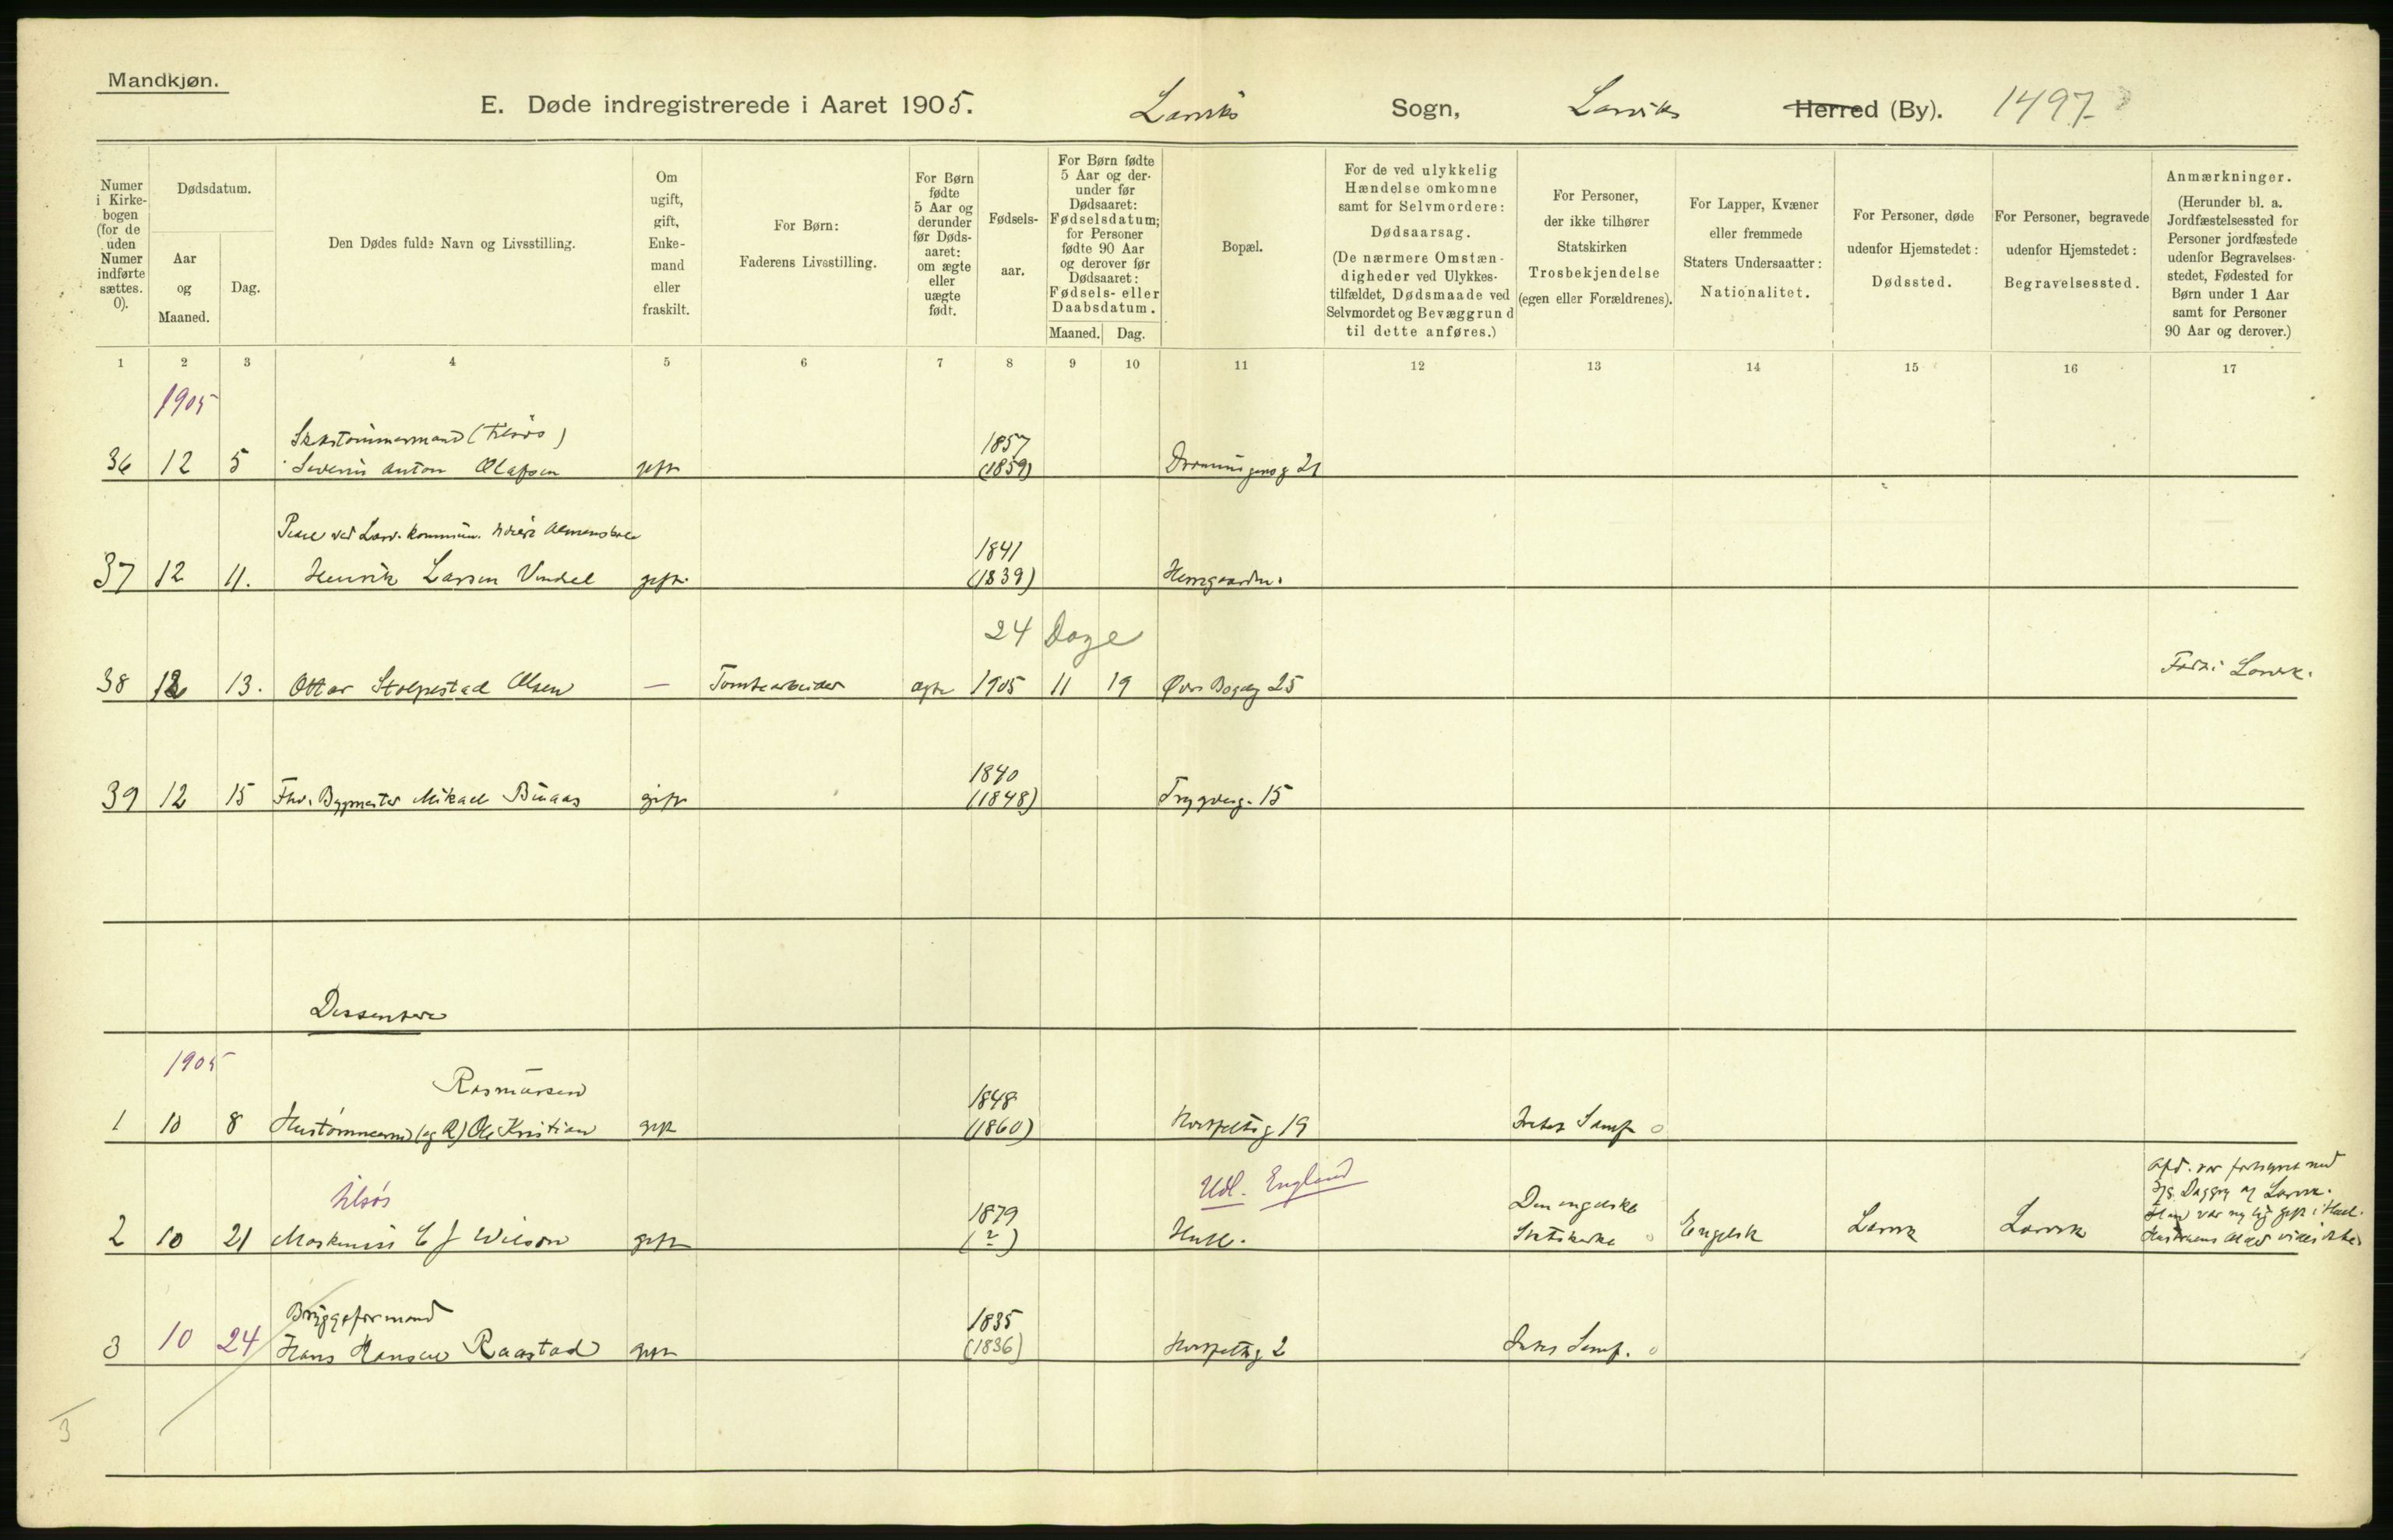 Mandkjøn.
E. Døde indregistrerede i Aaret 1905. Larviks Sogn, Larviks Herred (By). 1497
Numer i Kirkebogen (for de uden Numer indførte sættes. 0).
Dødsdatum.
Aar og Maaned.
Dag.
Den Dødes fulde Navn og Livsstilling.
Om ugift, gift, Enkemand eller fraskilt.
For Børn: Faderens Livsstilling.
For Børn fødte 5 Aar og derunder før Dødsaaret: om ægte eller uægte født.
Fødselsaar.
For Børn fødte 5 Aar og derunder før Dødsaaret: Fødselsdatum; for Personer fødte 90 Aar og derover før Dødsaaret: Fødsels- eller Daabsdatum.
Maaned. Dag.
Bopæl.
For de ved ulykkelig Hændelse omkomne samt for Selvmordere: Dødsaarsag. (De nærmere Omstændigheder ved Ulykkestilfældet, Dødsmaade ved Selvmordet og Bevæggrund til dette anføres.)
For Personer, der ikke tilhører Statskirken Trosbekjendelse (egen eller Forældrenes).
For Lapper, Kvæner eller fremmede Staters Undersaatter: Nationalitet.
For Personer, døde udenfor Hjemstedet: Dødssted.
For Personer, begravede udenfor Hjemstedet: Begravelsessted.
Anmærkninger. (Herunder bl. a. Jordfæstelsessted for Personer jordfæstede udenfor Begravelsesstedet, Fødested for Børn under 1 Aar samt for Personer 90 Aar og derover.)
1 2 3 4 5 6 7 8 9 10 11 12 13 14 15 16 17
1905
Skibstømmermand (tilsøs) 1857
36 12 5 Severin Anton Olafsen gift (1859) Dronningensg 21
ved Larv. kommun. 1841
37 12 11. Henrik Larsen Vindel gift (1839) Herregaarden.
24 Dage
38 12 13. Ottar Stolpestad Olsen — Tomtearbeider ægte 1905 11 19 Øvre Bøgeg 25 Født i Larvik.
1840
39 12 15 Fhv. Bygmester Mikael Buaas gift (1848) Trygvesg. 15
Dissentere
1905
Rasmussen 1848
1 10 8 Hustømmermd (og R) Ole Kristian gift (1860) Hospitalsg 19 Indes Samf. 0
tilsøs 1879 Udl. England Den engelske
2 10 21 Maskinist C J Wilson gift (?) Hull. Statskirke 0 Engelsk Larvik Larvik
Afd. var forhyret med
Dag af Larvik.
Han var nylig gift i Hull.
Hustruens Alder vides ikke
Bryggeformand 1835
3 10 24 Hans Hansen Raastad gift (1836) Hospitalsg 2 Indes Samf. 0
3